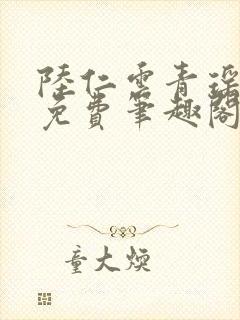 陸仁雲青瑶
免費筆趣閣
童大煥